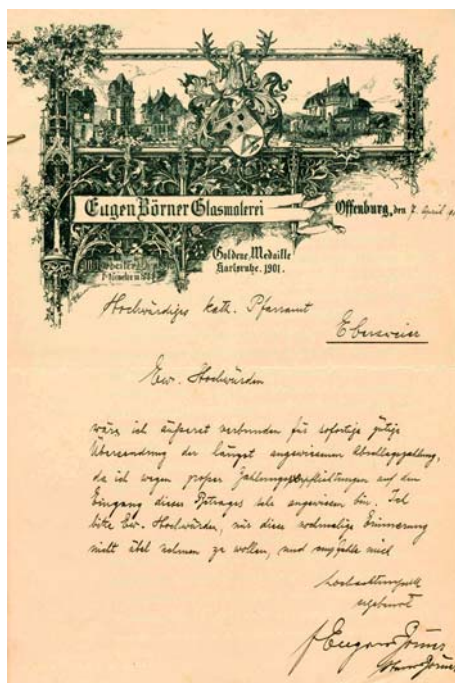 Eugen Börner Glasmalerei
Offenburg, den 7. April
Goldene Medaille
Karlsruhe. 1901.
Hochwürdiges kath. Pfarramt
Ebersweier
Ew. Hochwürden
wäre ich äußerst verbunden für sofortige gütige
Übersendung der längst angewiesenen Abschlagszahlung,
da ich wegen großer Zahlungsverpflichtungen auf den
Eingang dieses Betrages sehr angewiesen bin. Ich
bitte Ew. Hochwürden, mir diese nochmalige Erinnerung
nicht übel nehmen zu wollen, und empfehle mich
hochachtungsvoll
ergebenst
Eugen Börner